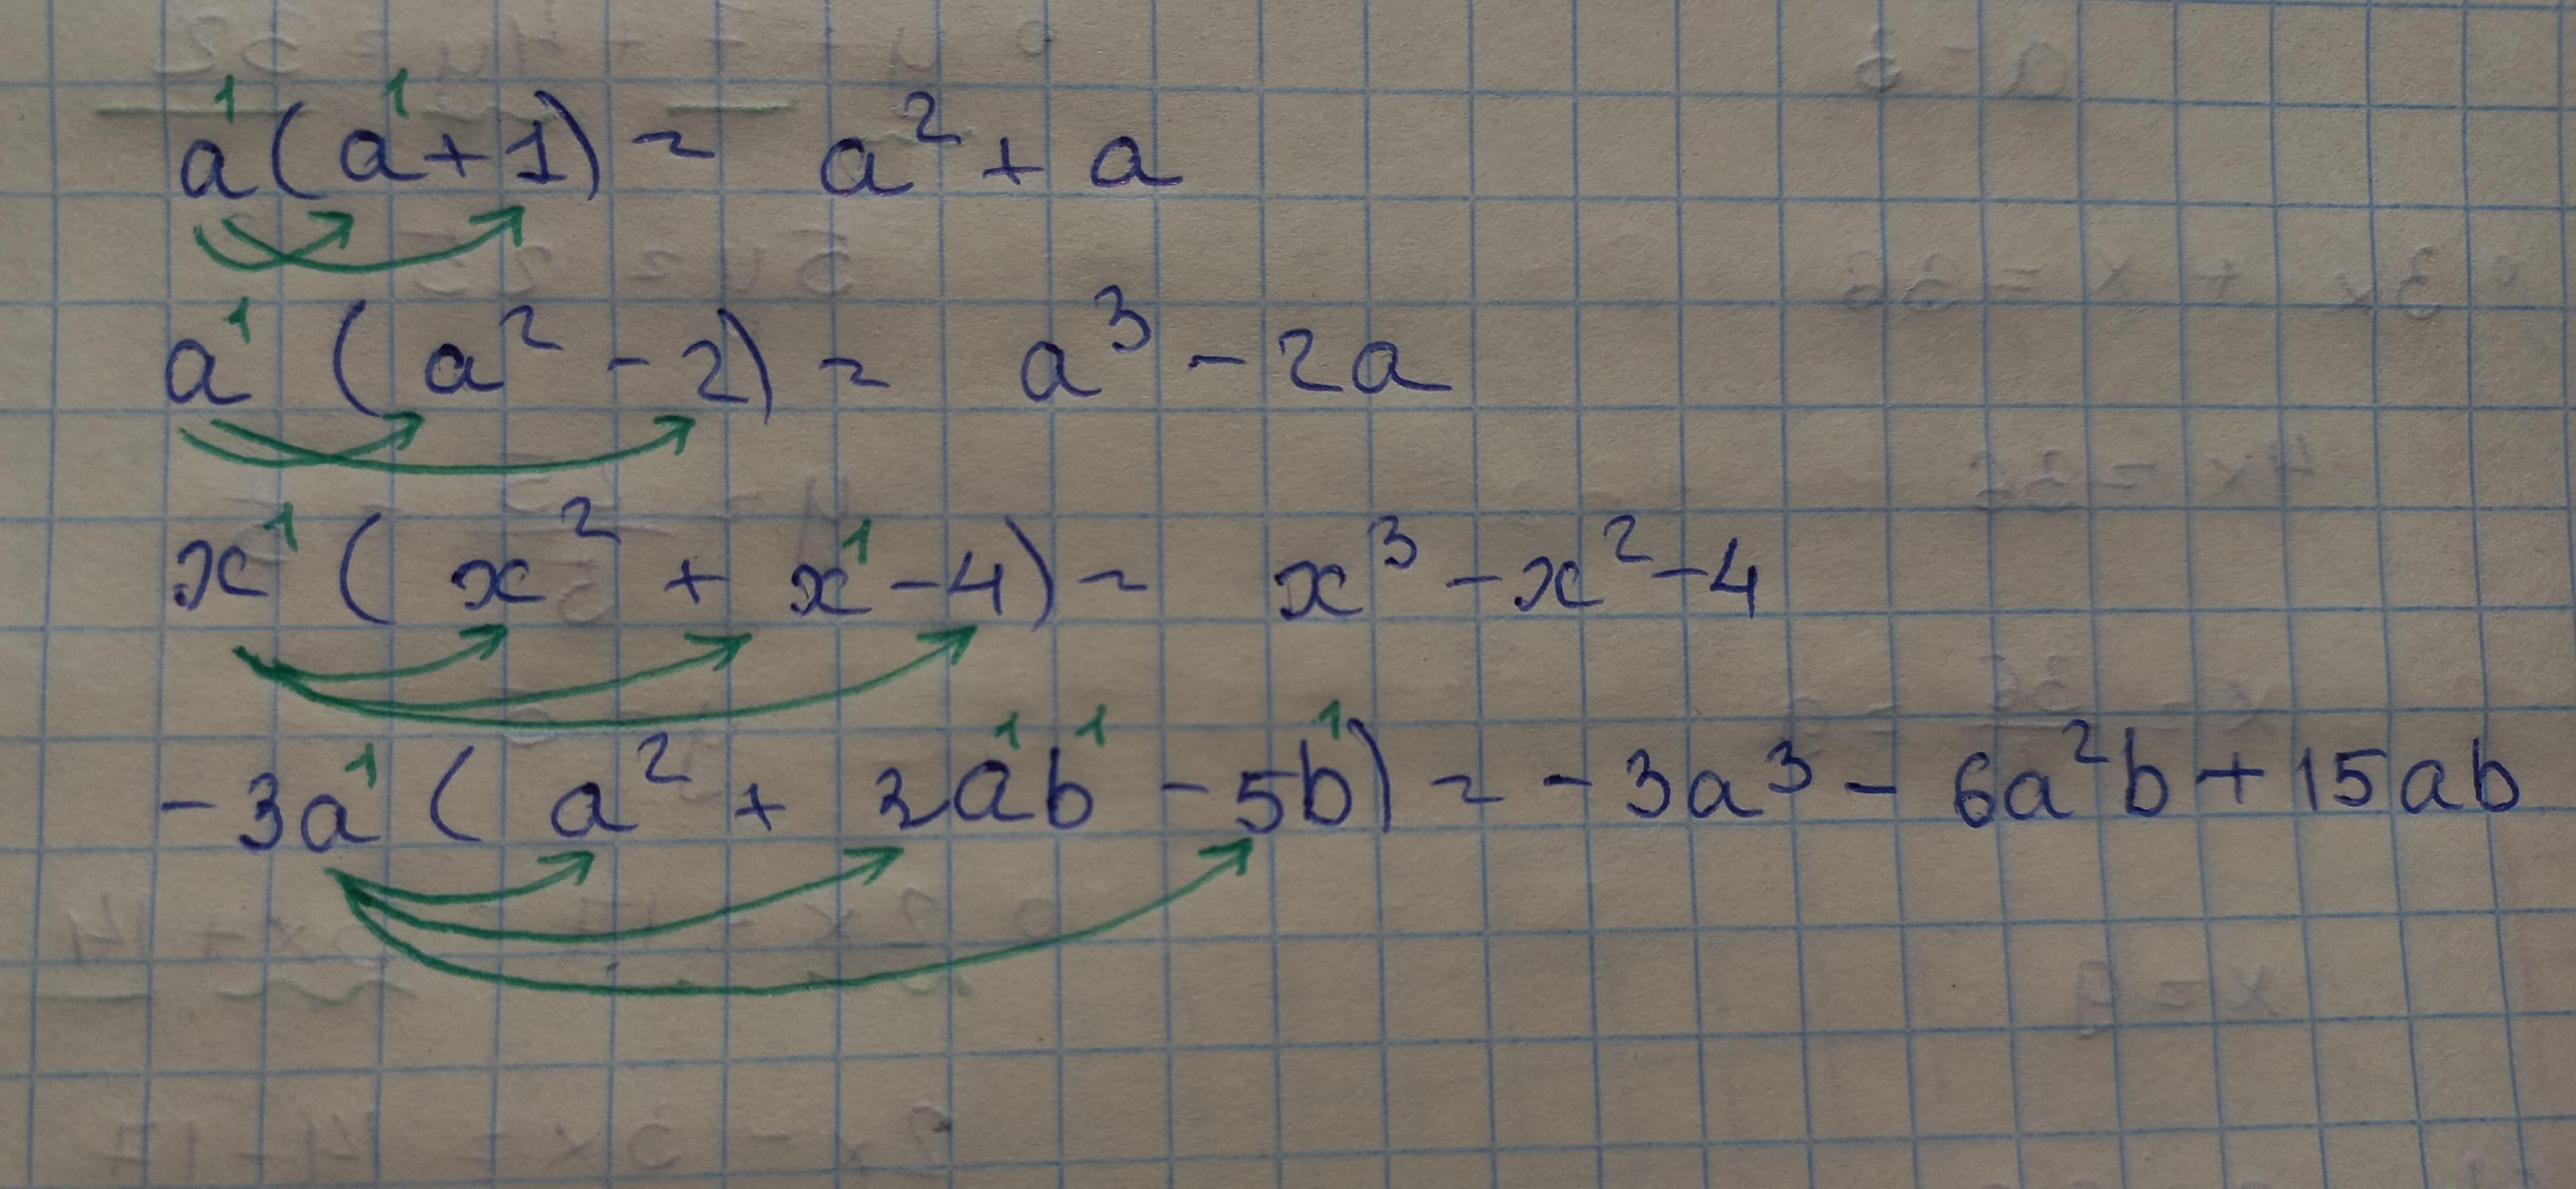 a¹(a¹+1) = a² + a
a¹ (a² - 2) = a³ - 2a
x¹ (x² + x¹ - 4) = x³ - x² - 4
-3a¹ (a² + 2a¹b¹ - 5b¹) = -3a³ - 6a²b + 15ab